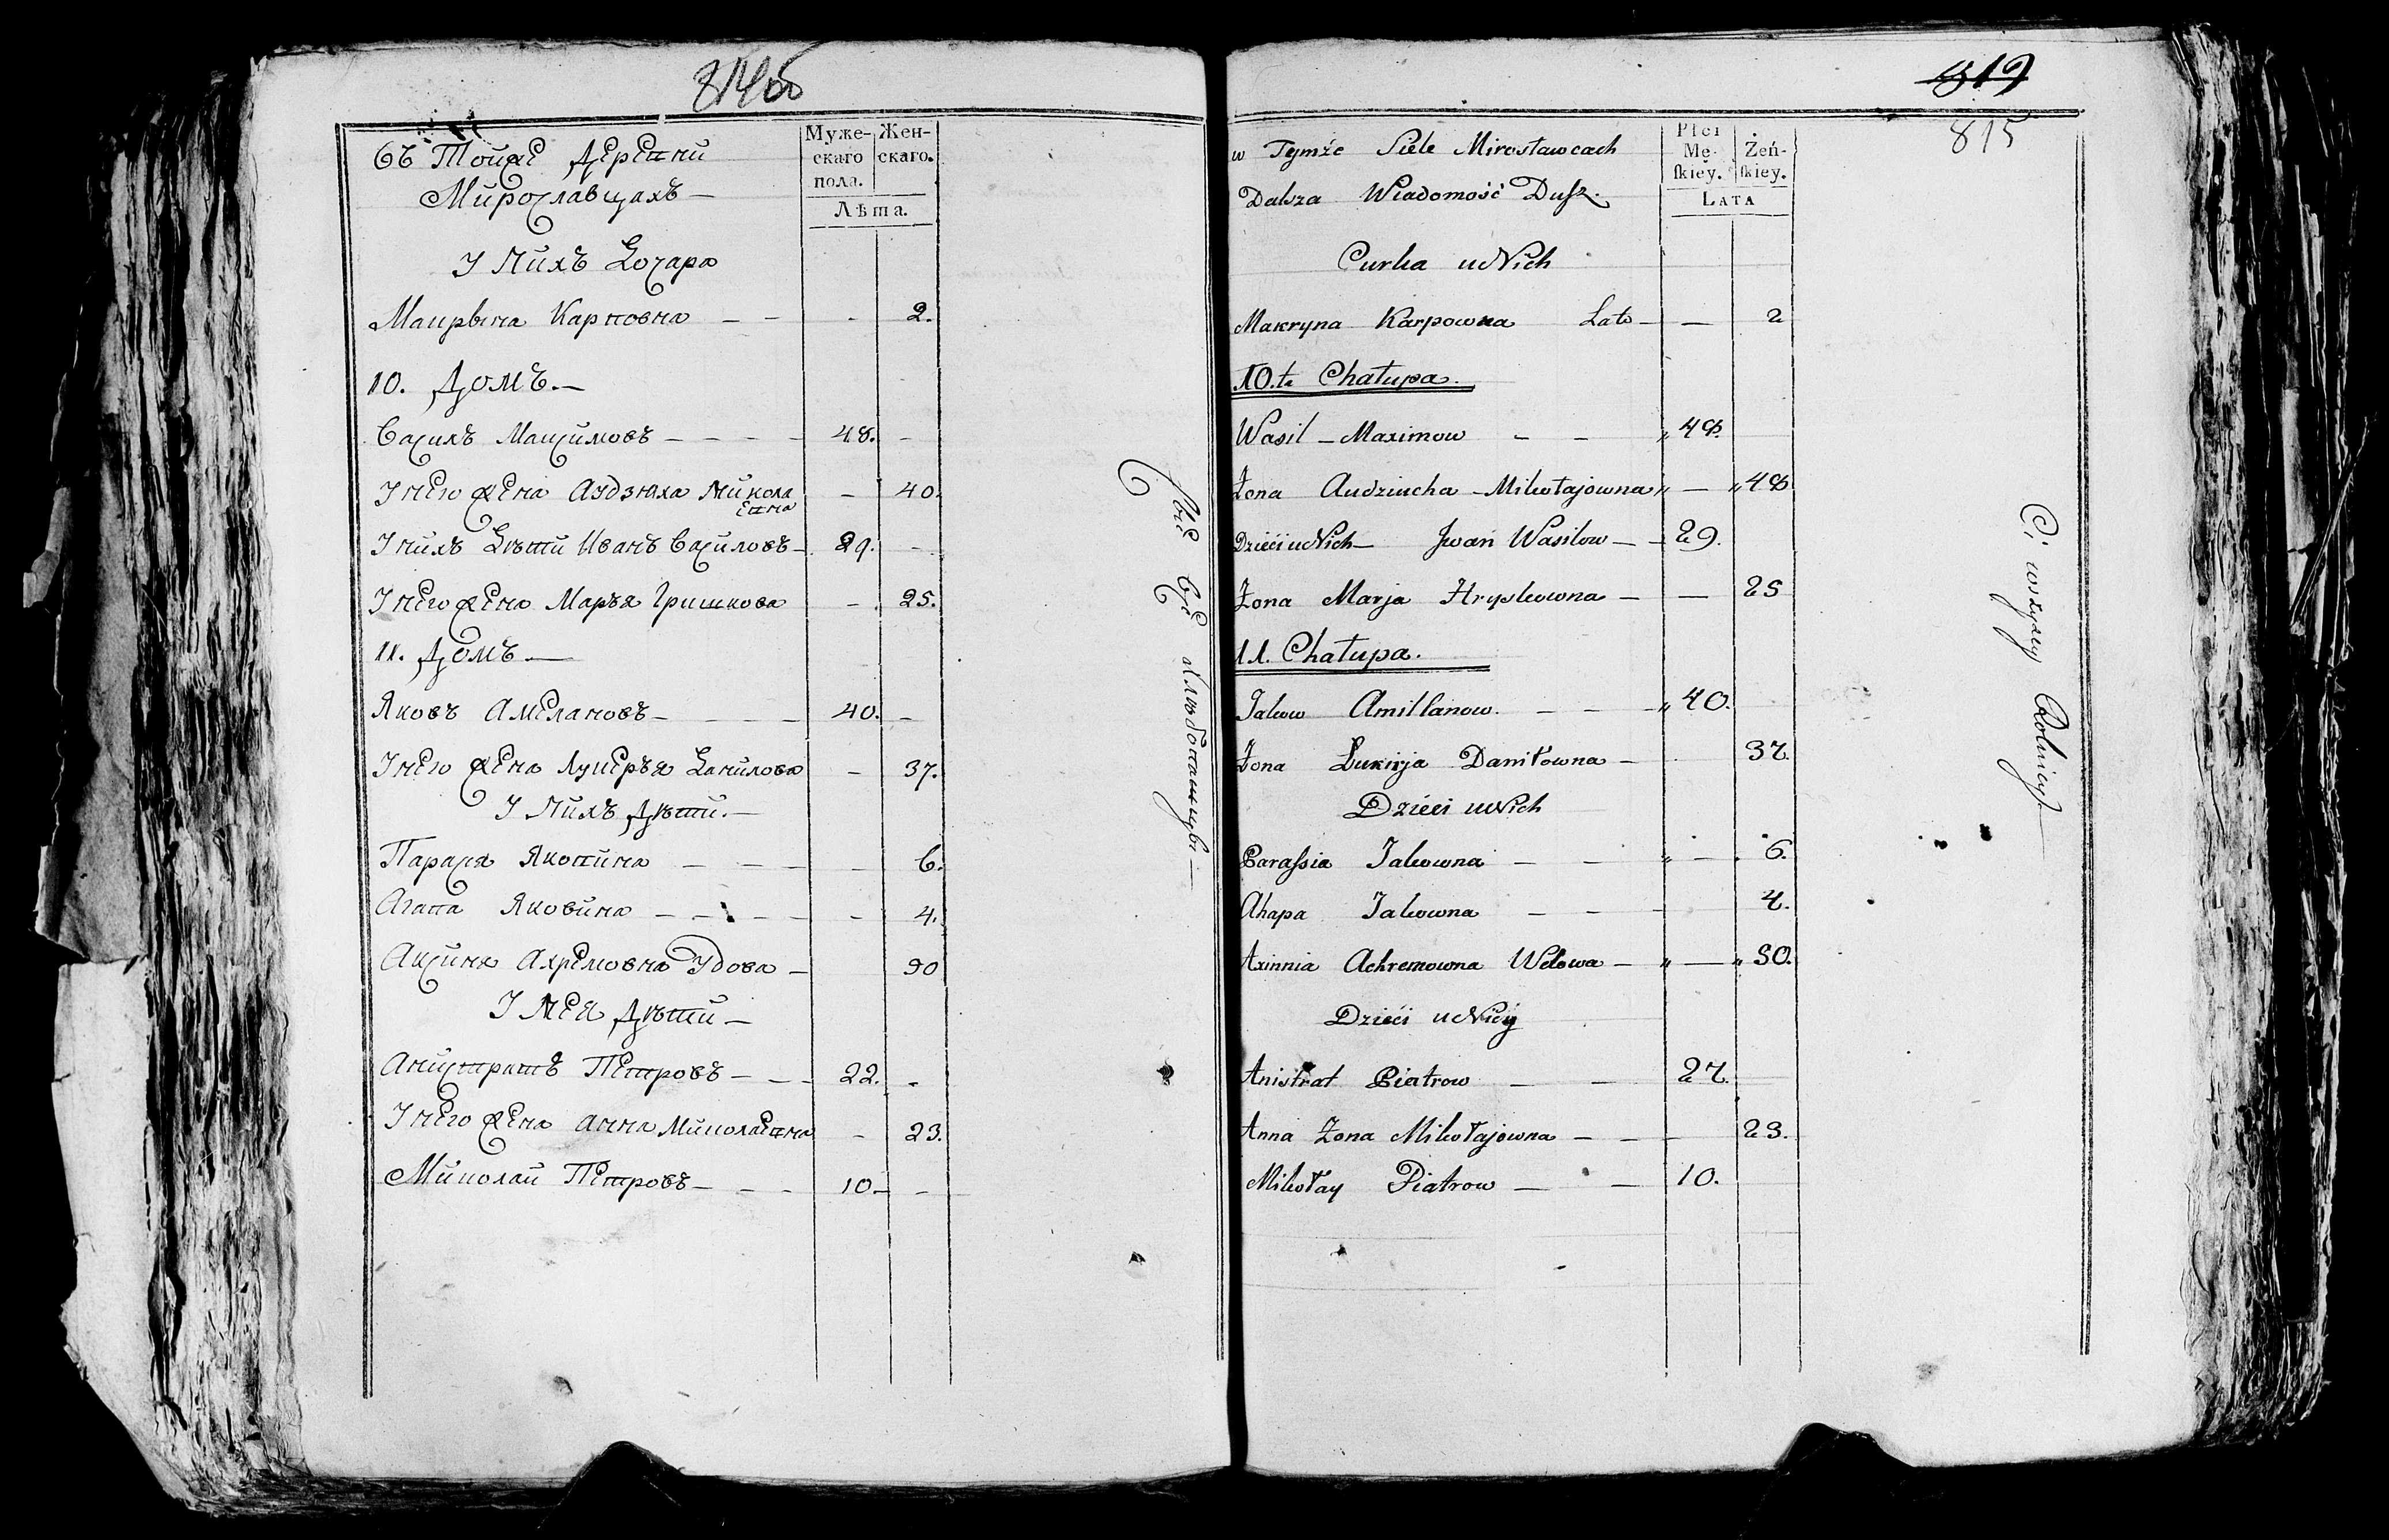 814об
Въ Тойже Деревни
Мирославцахъ —
Муже-
скаго
пола.
Жен-
скаго.
Лѣта.
У Нихъ Дочара
Макрына Карповна — — - 2.
10. Домъ. —
Василъ Максимовъ — — — — 48. -
У него жена Аудзюха Микола
евна — 40.
У нихъ Дѣти Иванъ Василовъ — 29. -
У него жена Маръя Гришкова — 25.
11. Домъ —
Яковъ Амеляновъ — — — — 40. -
У него жена Лукеръя Данилова — 37.
У Нихъ Дѣти. —
Парася Яковина — — — — 6.
Агапа Яковина — — — — - 4.
Аксиня Ахремовна Удова — 90
У Нея Дѣти —
Анистратъ Петровъ — — - 22. -
У него жена Анна Миколаевна - 23.
Миколай Петровъ — — - 10. — -
Сые Все хлѣбопашцы —
819
815
w Tymże Siele Mirosławcach
Dalsza Wiadomość Dusz.
Płci
Mę-
skiey.
Żeń-
skiey.
LATA
Curka u Nich
Makryna Karpowna Lato — — 2
10.ta Chałupa.
Wasil — Maximow — — „ 48.
Żona Audziucha — Mikołajowna „ — „ 48
Dzieci u Nich — Jwan Wasilow — — 29.
Żona Marja Hryskowna — — 25
11. Chałupa.
Jakow Amillanow. — — — „ 40.
Żona Łukirja Daniłowna — 37.
Dzieci u Nich
Parassia Jakowna — — „ — . 6.
Ahapa Jakowna — — — 4.
Axinnia Achremowna Wdowa — „ — „ 90.
Dzieci u Niey
Anistrat Piatrow — — 27.
Anna Żona Mikołajowna — — — 23.
Mikołay Piatrow — — 10.
Ci wszyscy Rolnicy —